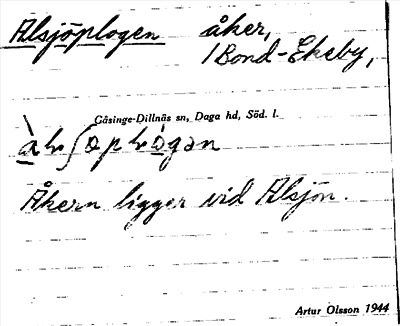 Alsjöplogen åker,
/Bond-Ekeby,
Gåsinge-Dillnäs sn, Daga hd, Söd. l.
Åkern ligger vid Alsjön.
Artur Olsson 1944